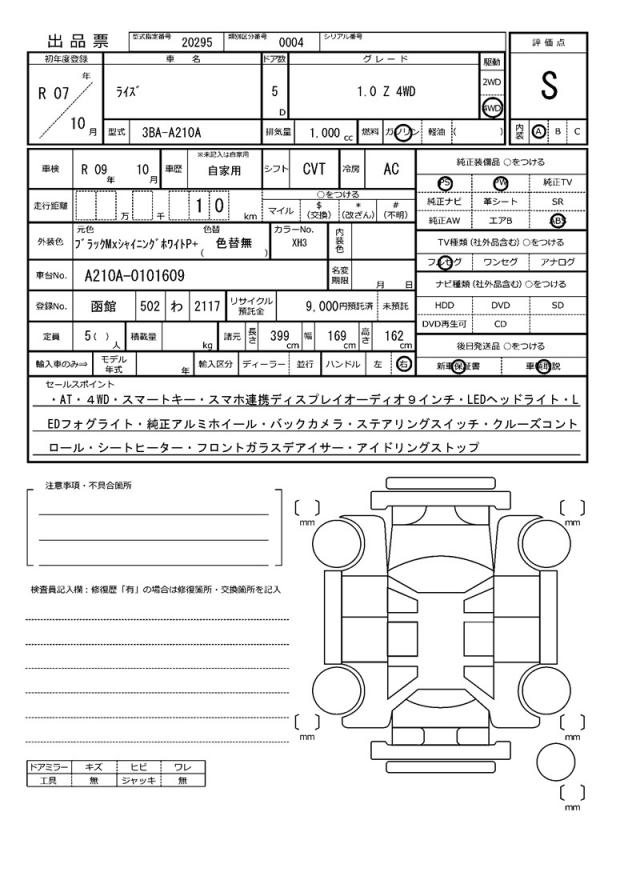 出品票 型式指定番号 20295 類別区分番号 0004 シリアル番号
評価点
S
初年度登録 車名 ドア数 グレード 駆動
R 07 年 10 月 ライズ 5 D 1.0 Z 4WD 2WD 4WD
型式 3BA-A210A 排気量 1.000 cc 燃料 ガソリン 軽油 ( )
内装 A B C
車検 R 09 年 10 月 車歴 ※未記入は自家用 自家用 シフト CVT 冷房 AC
走行距離 万 千 1 0 km
○をつける
マイル $(交換) *(改ざん) #(不明)
外装色 元色 ブラックMxシャイニングホワイトP+ 色替 ( 色替無 ) カラーNo. XH3 内装色
車台No. A210A-0101609 名変期限 月 日
登録No. 函館 502 わ 2117 リサイクル預託金 9,000円預託済 未預託
定員 5 ( ) 人 積載量 kg 諸元 長さ 399 cm 幅 169 cm 高さ 162 cm
輸入車のみ⇒ モデル年式 年 輸入区分 ディーラー 並行 ハンドル 左 右
純正装備品 ○をつける
PS PW 純正TV
純正ナビ 革シート SR
純正AW エアB ABS
TV種類 (社外品含む) ○をつける
フルセグ ワンセグ アナログ
ナビ種類 (社外品含む) ○をつける
HDD DVD SD
DVD再生可 CD
後日発送品 ○をつける
新車保証書 車輌取説
セールスポイント
・AT・4WD・スマートキー・スマホ連携ディスプレイオーディオ9インチ・LEDヘッドライト・L
EDフォグライト・純正アルミホイール・バックカメラ・ステアリングスイッチ・クルーズコント
ロール・シートヒーター・フロントガラスデアイサー・アイドリングストップ
注意事項・不具合箇所
検査員記入欄：修復歴「有」の場合は修復箇所・交換箇所を記入
mm
mm
mm
mm
mm
ドアミラー キズ ヒビ ワレ
工具 無 ジャッキ 無